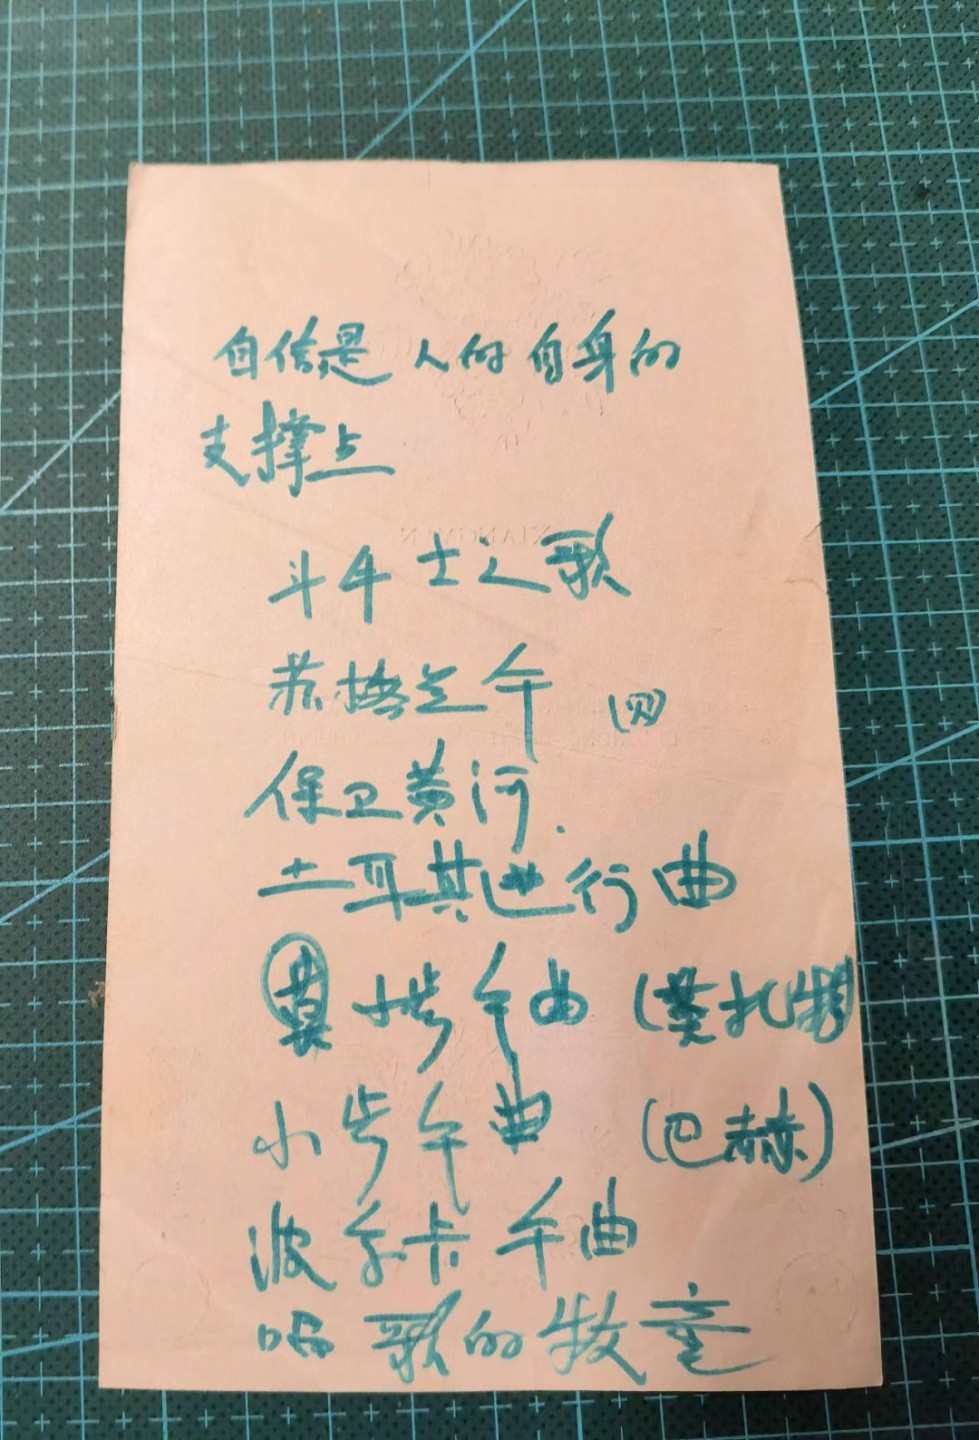 自信是人的自身的
支撑点
斗牛士之歌
苏格兰午 四
保卫黄河.
土耳其进行曲
小步午曲(莫扎特)
小步午曲 (巴赫)
波尔卡午曲
唱歌的牧童